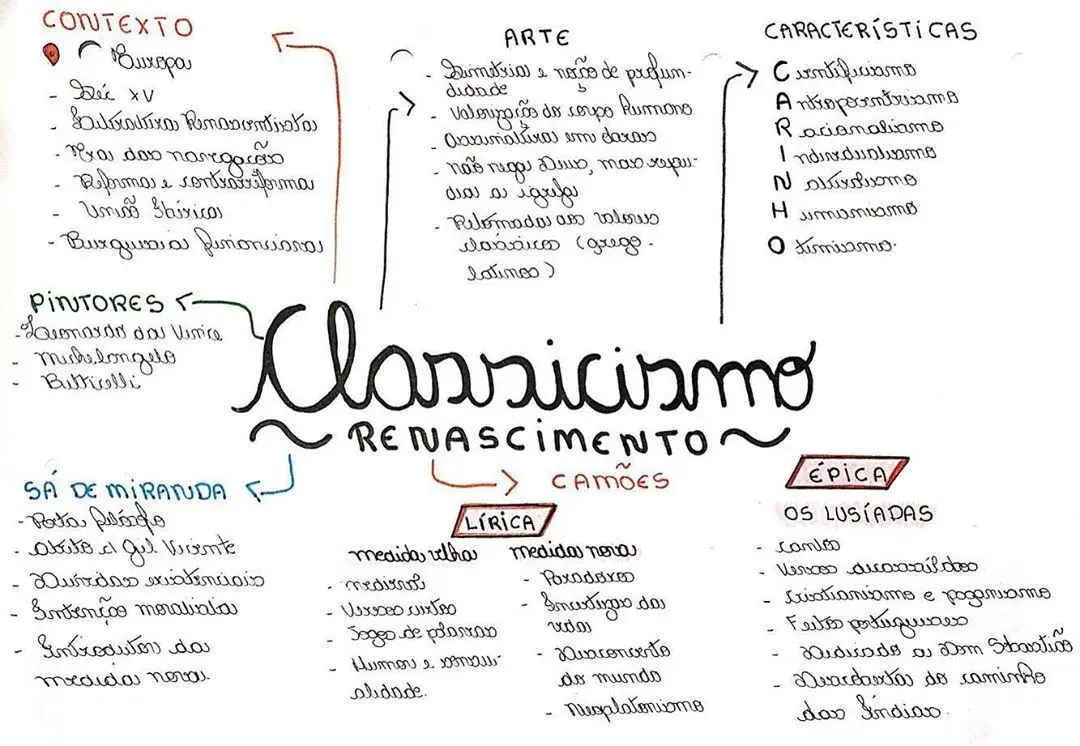 CONTEXTO
Europa
- Séc XV
- Literatura Renascentista
- Era das navegação
- Reforma e contrarreforma
- União Ibérica
- Burguesia financiana
ARTE
- Simetria e noção de profun-
didade
- Valorização do corpo humano
- Assinaturas em obras
- não nega Deus, mas repu-
dia a igreja
- Retomada aos valores
clássicos (grego-
latinos)
CARACTERÍSTICAS
Cientificismo
Antropocentrismo
Racionalismo
Individualismo
N
Humanismo
Otimismo.
PINTORES
- Leonardo da Vince
- Michelangelo
- Botticelli
Classicismo
~ RENASCIMENTO ~
SÁ DE MIRANDA
- Poeta filósofo
- Atrito c/ Gil Vicente
- Dúvidas existenciais
- Intenção moralista
- Introdutor da
medida nova
CAMÕES
LÍRICA
medida velha
- medieval
- Versos curtos
- Jogos de palavras
- Humor e sensu-
alidade.
medida nova
- Paradoxos
- Incertezas da
vida
- Desconcerto
do mundo
- Neoplatonismo
ÉPICA
OS LUSÍADAS
- Cantos
- Versos decassílabos
- Cristianismo e paganismo
- Feitos portugueses
- Dedicado a Dom Sebastião
- Descoberta do caminho
das Índias.